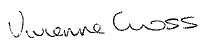 Vivienne Cross